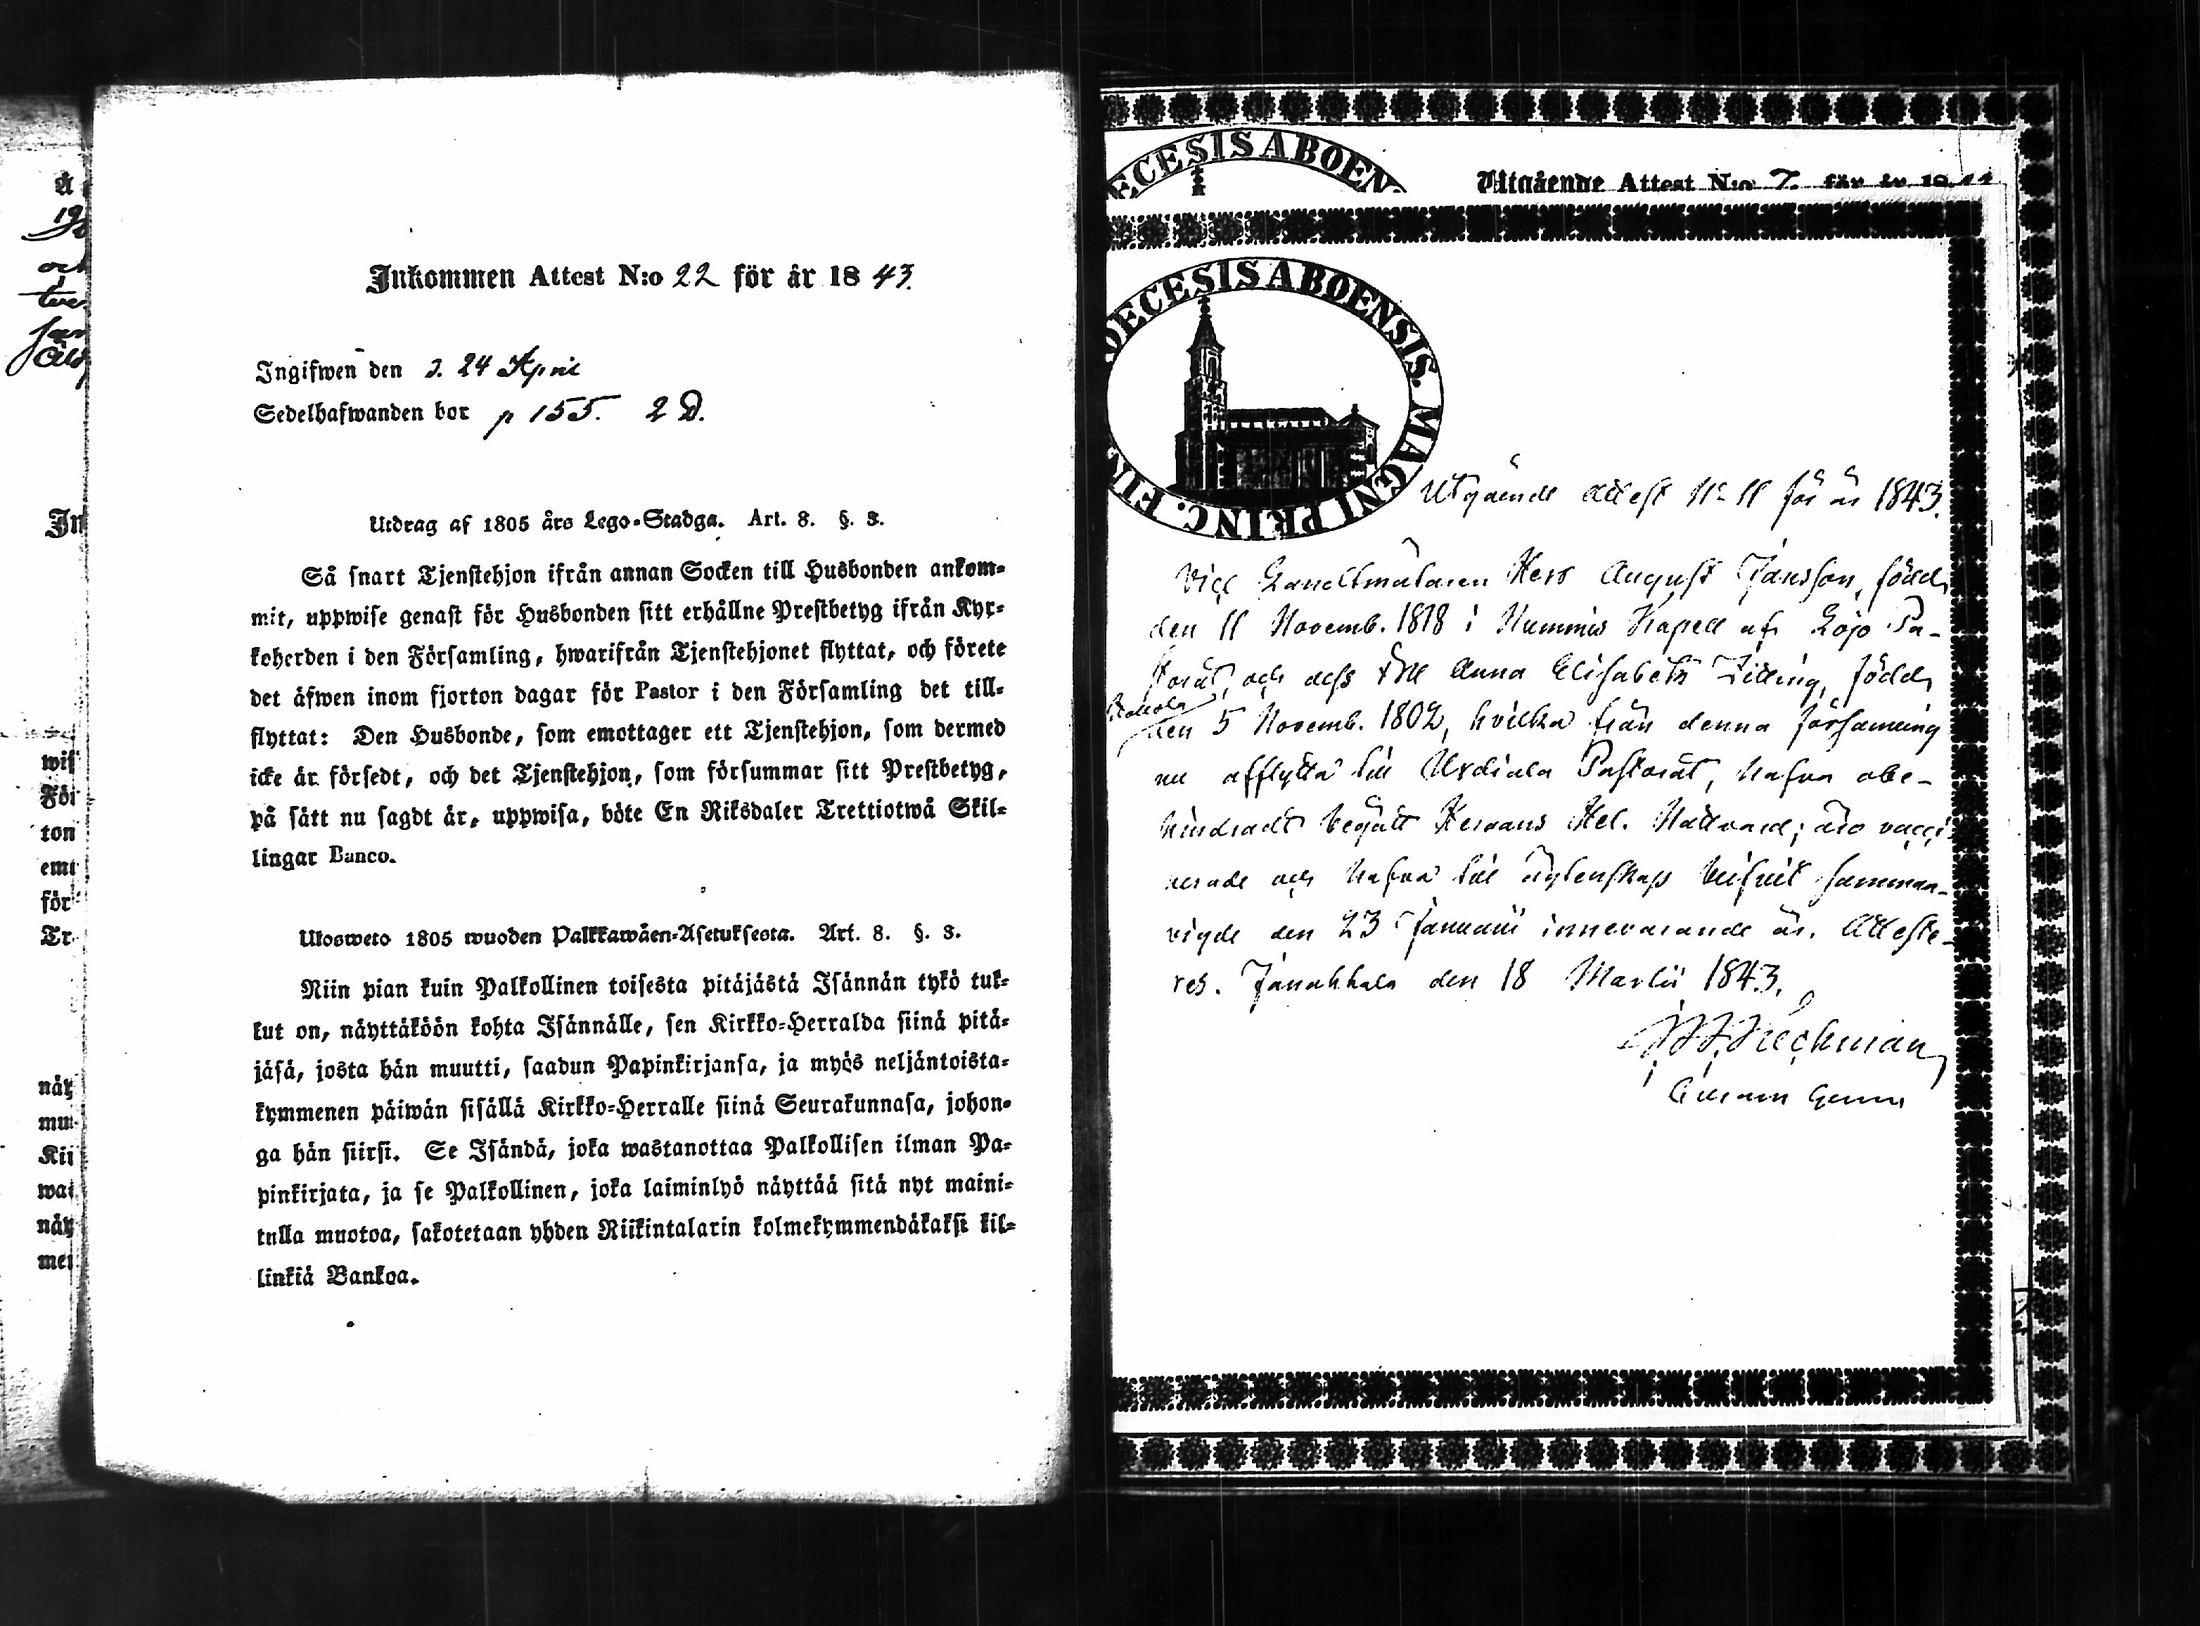 Inkommen Attest N:o 22 för år 1843.
Ingifwen den d. 24 April
Sedelhafwanden bor p 155. 2 D.
Utdrag af 1805 års Lego-Stadga. Art. 8. §. 3.
Så snart Tjenstehjon ifrån annan Socken till Husbonden ankom-
mit, uppwise genast för Husbonden sitt erhållne Prestbetyg ifrån Kyr-
koherden i den Församling, hwarifrån Tjenstehjonet flyttat, och förete
det äfwen inom fjorton dagar för Pastor i den Församling det till-
flyttat: Den Husbonde, som emottager ett Tjenstehjon, som dermed
icke är försedt, och det Tjenstehjon, som försummar sitt Prestbetyg,
på sätt nu sagdt är, uppwisa, böte En Riksdaler Trettiotwå Skil-
lingar Banco.
Ulosweto 1805 wuoden Palkkawäen-Asetuksesta. Art. 8. §. 3.
Niin pian kuin Palkollinen toisesta pitäjästä Isännän tykö tul-
lut on, näyttäköön kohta Isännälle, sen Kirkko-Herralda siinä pitä-
jäsä, josta hän muutti, saadun Papinkirjansa, ja myös neljäntoista-
kymmenen päiwän sisällä Kirkko-Herralle siinä Seurakunnasa, johon-
ga hän siirsi. Se Isändä, joka wastanottaa Palkollisen ilman Pa-
pinkirjata, ja se Palkollinen, joka laiminlyö näyttää sitä nyt maini-
tulla muotoa, sakotetaan yhden Riikintalarin kolmekymmendäkaksi kil-
linkiä Bankoa.
ECESIS ABOEN
Utgående Attest N:o 7. för år 18
DECESIS ABOENSIS. MAGNI PRINC. FIN
Utgående Attest No 11 för år 1843.
Vice Landtmätaren Herr August Jansson, född
den 11 Novemb. 1818 i Nummis Kapell af Lojo Pa-
storat, och dess Anna Elisabeth född
den 5 Novemb. 1802, hvilka från denna församling
nu afflytta till Urdiala Pastorat, hafva obe-
hindradt begått Herrans Hel. Nattvard; äro vacci-
nerade och hafva till ägtenskap blifvit samman-
vigde den 23 Januarii innevarande år. Atteste-
res. Janakkala den 18 Martii 1843.